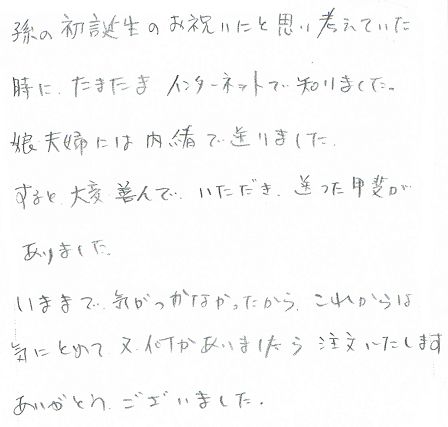 孫の初誕生のお祝いにと思い考えていた
時に、たまたま インターネットで知りました。
娘夫婦には内緒で送りました。
すると、大変喜んで、いただき、送った甲斐が
ありました。
いままで、気がつかなかったから、これからは
気にとめて、又、何かありましたら 注文いたします
ありがとう、ございました。